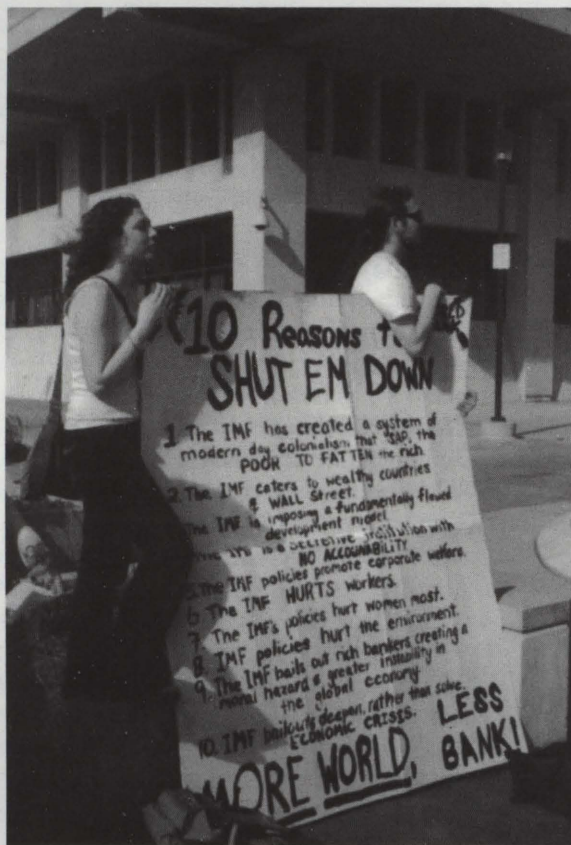 10 Reasons to
SHUT EM DOWN
1 The IMF has created a system of
modern day colonialism that SAP, the
POOR TO FATTEN the rich
2. The IMF caters to wealthy countries
& WALL Street.
The IMF is imposing a fundamentally flawed
development model.
The IMF is a SECRETIVE institution with
NO ACCOUNABILITY
5. The IMF policies promote corporate welfare.
6 The IMF HURTS workers.
7. The IMF's policies hurt women most.
8 IMF policies hurt the environment.
9. The IMF bails out rich bankers creating a
moral hazard & greater instability in
the global economy
10. IMF bailouts deepen, rather than solve
ECONOMIC CRISIS.
MORE WORLD, LESS
BANK!